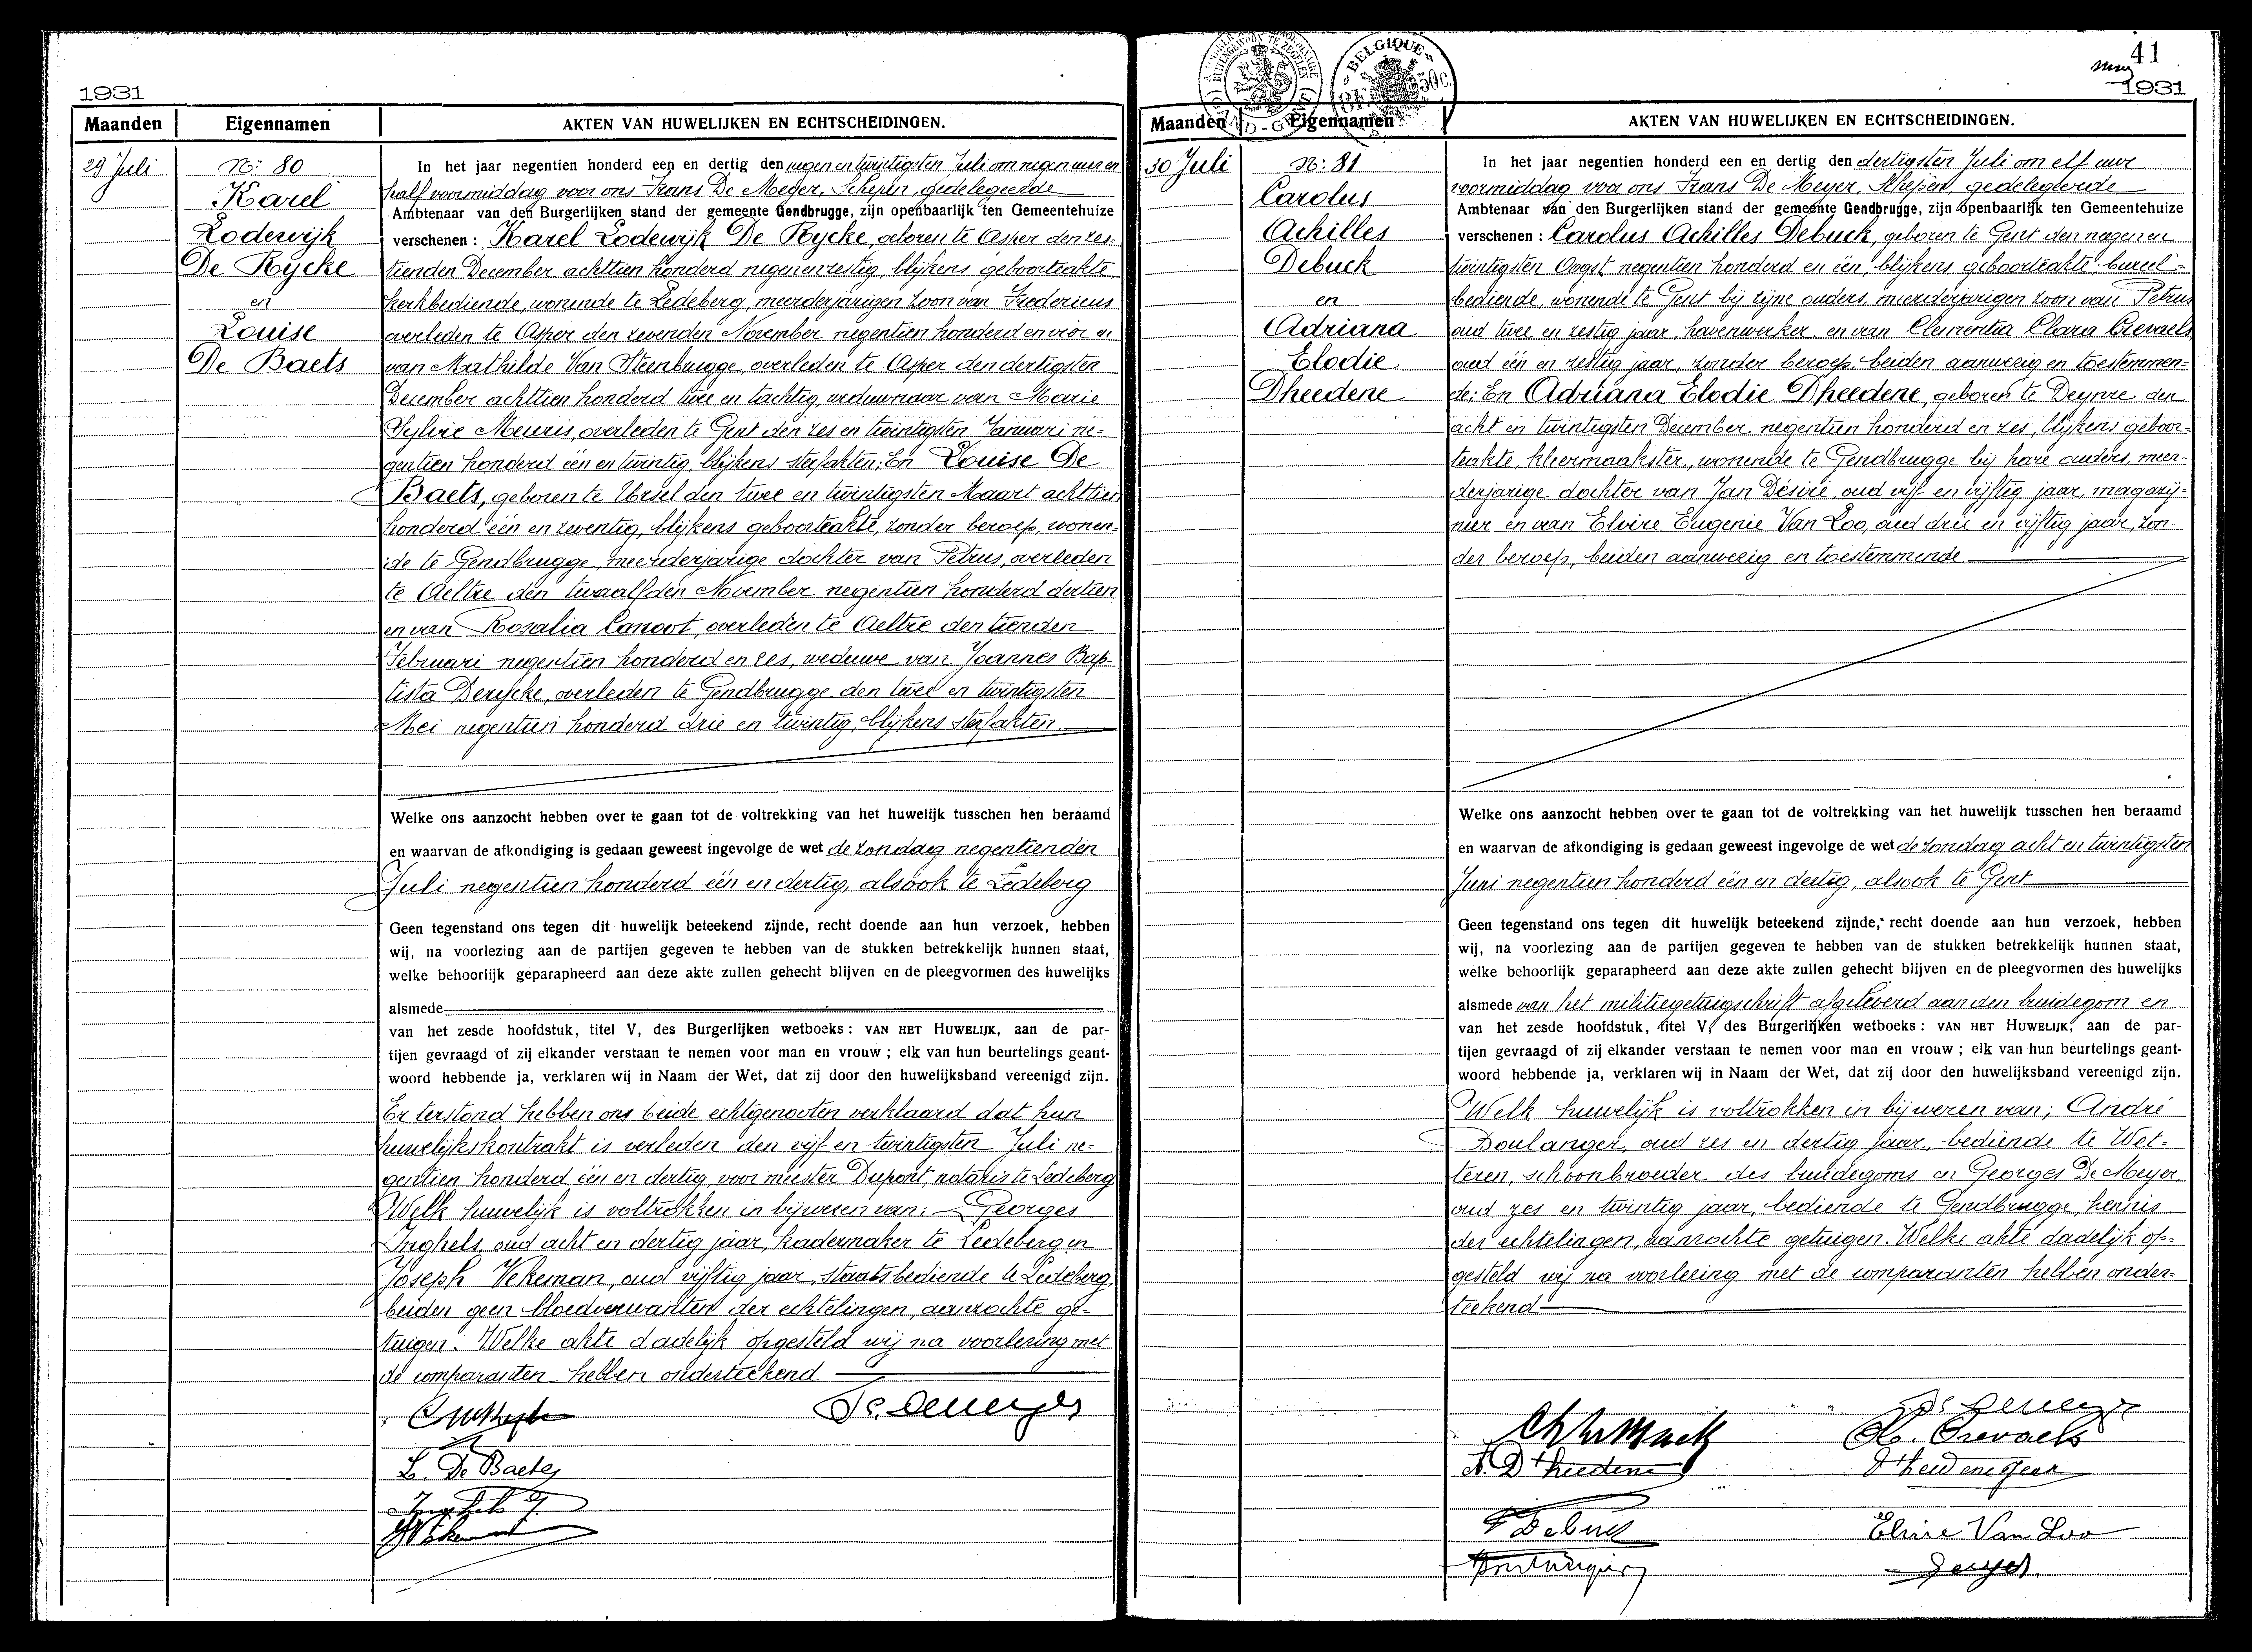 1931
Maanden
Eigennamen
AKTEN VAN HUWELIJKEN EN ECHTSCHEIDINGEN.
29 Juli
N: 80
Karel
Lodewijk
De Rycke
en
Louise
De Baets
In het jaar negentien honderd een en dertig den negen en twintigsten Juli om negen uur en
half voormiddag voor ons Frans De Meyer, Schepen, gedelegeerde
Ambtenaar van den Burgerlijken stand der gemeente Gendbrugge, zijn openbaarlijk ten Gemeentehuize
verschenen : Karel Lodewijk De Rycke, geboren te Asper den zes-
tienden December achttien honderd negenenzestig, blijkens geboorteakte
kerkbediende, wonende te Ledeberg, meerderjarigen zoon van Fredericus
overleden te Asper den zevenden November negentien honderd en vier en
van Mathilde Van Steenbrugge, overleden te Asper den dertigsten
December achttien honderd twee en tachtig, weduwnaar van Marie
Sylvie Meuris, overleden te Gent den zes en twintigsten Januari ne-
gentien honderd één en twintig, blijkens sterfakten; En Louise De
Baets, geboren te Ursel den twee en twintigsten Maart achttien
honderd één en zeventig, blijkens geboorteakte, zonder beroep, wonen-
de te Gendbrugge, meerderjarige dochter van Petrus, overleden
te Aeltre den twaalfden November negentien honderd dertien
en van Rosalia Canoot, overleden te Aeltre den tienden
Februari negentien honderd en zes, weduwe van Joannes Bap-
tista Derycke, overleden te Gendbrugge den twee en twintigsten
Mei negentien honderd drie en twintig, blijkens sterfakten
Welke ons aanzocht hebben over te gaan tot de voltrekking van het huwelijk tusschen hen beraamd
en waarvan de afkondiging is gedaan geweest ingevolge de wet de zondag negentienden
Juli negentien honderd één en dertig, alsook te Ledeberg
Geen tegenstand ons tegen dit huwelijk beteekend zijnde, recht doende aan hun verzoek, hebben
wij, na voorlezing aan de partijen gegeven te hebben van de stukken betrekkelijk hunnen staat,
welke behoorlijk geparapheerd aan deze akte zullen gehecht blijven en de pleegvormen des huwelijks
alsmede
van het zesde hoofdstuk, titel V, des Burgerlijken wetboeks : VAN HET HUWELIJK, aan de par-
tijen gevraagd of zij elkander verstaan te nemen voor man en vrouw ; elk van hun beurtelings geant-
woord hebbende ja, verklaren wij in Naam der Wet, dat zij door den huwelijksband vereenigd zijn.
En terstond hebben ons beide echtgenooten verklaard dat hun
huwelijkskontrakt is verleden den vijf en twintigsten Juli ne-
gentien honderd één en dertig, voor meester Dupont, notaris te Ledeberg
Welk huwelijk is voltrokken in bijwezen van: Georges
Inghels, oud acht en dertig jaar, kadermaker te Ledeberg en
Joseph Vekeman, oud vijftig jaar, staatsbediende te Ledeberg,
beiden geen bloedverwanten der echtelingen, aanzochte ge-
tuigen. Welke akte dadelijk opgesteld wij na voorlezing met
de comparanten hebben onderteekend
L. De Baets
Inghels G.
41
1931
BELGIQUE
Maanden
Eigennamen
AKTEN VAN HUWELIJKEN EN ECHTSCHEIDINGEN.
30 Juli
N: 81
Carolus
Achilles
Debuck
en
Adriana
Elodie
Dheedene
In het jaar negentien honderd een en dertig den dertigsten Juli om elf uur
voormiddag voor ons Frans De Meyer, Schepen, gedelegeerde
Ambtenaar van den Burgerlijken stand der gemeente Gendbrugge, zijn openbaarlijk ten Gemeentehuize
verschenen : Carolus Achilles Debuck, geboren te Gent den negen en
twintigsten Oogst negentien honderd en één, blijkens geboorteakte bureel-
bediende, wonende te Gent bij zijne ouders, meerderjarigen zoon van Petrus
oud twee en zestig jaar, havenwerker en van Clementia Clara Crevaels
oud één en zestig jaar, zonder beroep, beiden aanwezig en toestemmen-
de; En Adriana Elodie Dheedene, geboren te Deynze den
acht en twintigsten December negentien honderd en zes, blijkens geboor-
teakte, kleermaakster, wonende te Gendbrugge bij hare ouders, meer-
derjarige dochter van Jan Désiré, oud vijf en vijftig jaar, magazij-
nier en van Elvire Eugenie Van Loo, oud drie en vijftig jaar, zon-
der beroep, beiden aanwezig en toestemmende
Welke ons aanzocht hebben over te gaan tot de voltrekking van het huwelijk tusschen hen beraamd
en waarvan de afkondiging is gedaan geweest ingevolge de wet de zondag acht en twintigsten
Juni negentien honderd één en dertig, alsook te Gent
Geen tegenstand ons tegen dit huwelijk beteekend zijnde, recht doende aan hun verzoek, hebben
wij, na voorlezing aan de partijen gegeven te hebben van de stukken betrekkelijk hunnen staat,
welke behoorlijk geparapheerd aan deze akte zullen gehecht blijven en de pleegvormen des huwelijks
alsmede van het militiegetuigschrift afgeleverd aan den bruidegom en
van het zesde hoofdstuk, titel V, des Burgerlijken wetboeks : VAN HET HUWELIJK, aan de par-
tijen gevraagd of zij elkander verstaan te nemen voor man en vrouw ; elk van hun beurtelings geant-
woord hebbende ja, verklaren wij in Naam der Wet, dat zij door den huwelijksband vereenigd zijn.
Welk huwelijk is voltrokken in bijwezen van; André
Boulanger, oud zes en dertig jaar, bediende te Wet-
teren, schoonbroeder des bruidegoms en Georges De Meyer,
oud zes en twintig jaar, bediende te Gendbrugge, kennis
der echtelingen, aanzochte getuigen. Welke akte dadelijk op-
gesteld wij na voorlezing met de comparanten hebben onder-
teekend
A. D'heedene
Debuck
Elvire Van Loo